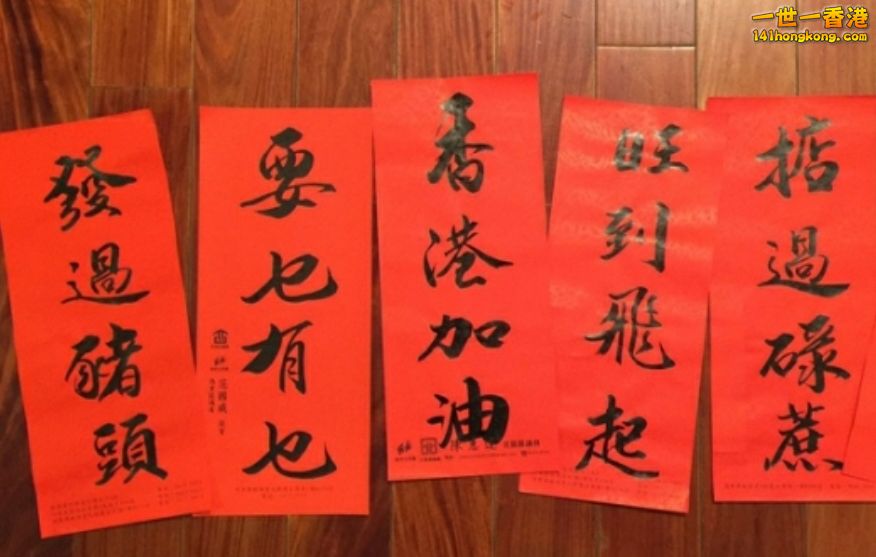 一世一香港
141hongkong.com
發過豬頭
要乜有乜
范國威
香港加油
旺到飛起
掂過碌蔗